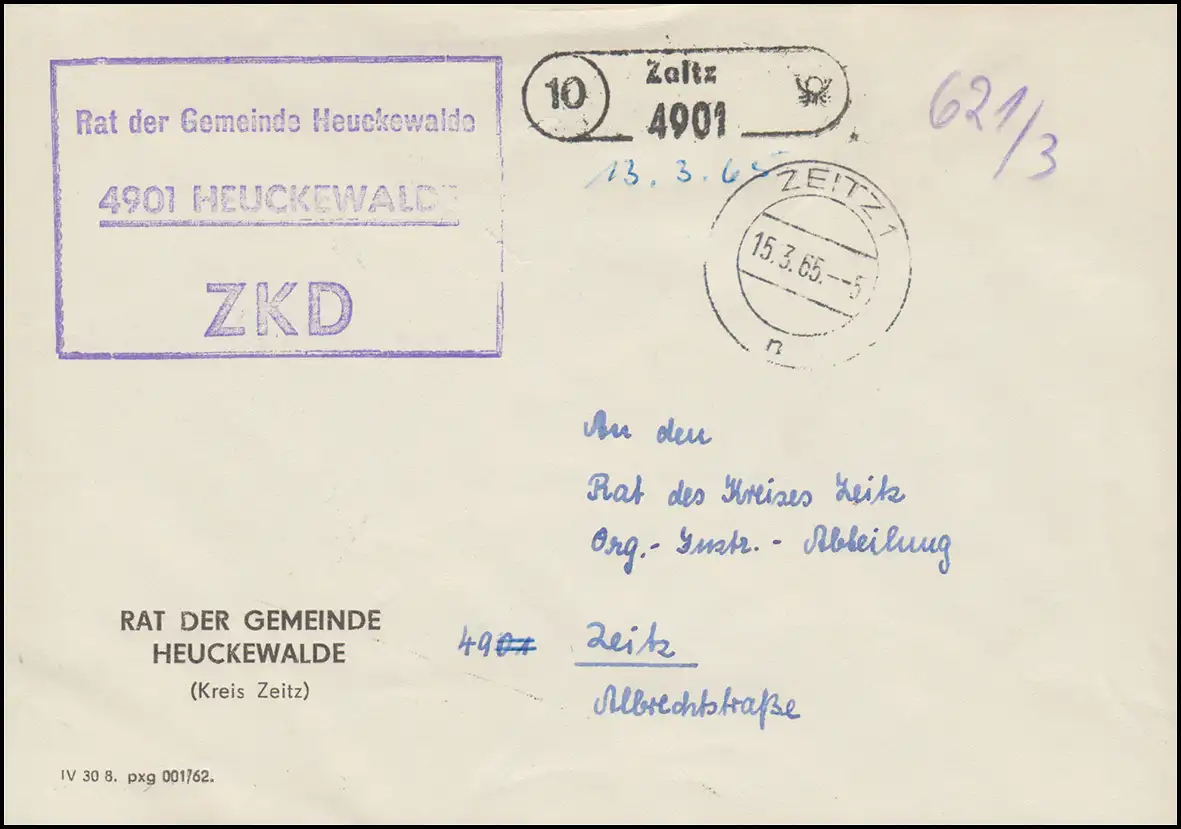 Rat der Gemeinde Heuckewalde
4901 HEUCKEWALDE
ZKD
10 Zeitz
4901
13. 3. 65
621/3
ZEITZ 1
15.3.65.--5
n
An den
Rat des Kreises Zeitz
Org.- Instr. - Abteilung
4901 Zeitz
Albrechtstraße
RAT DER GEMEINDE
HEUCKEWALDE
(Kreis Zeitz)
IV 30 8. pxg 001/62.